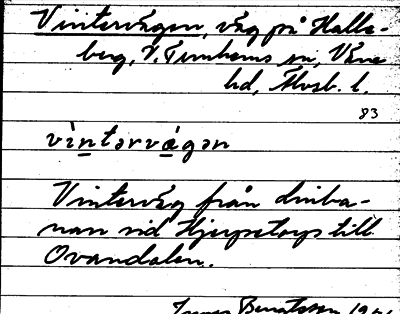 Vintervägen, väg på Halle-
berg, V. Tunhems sn, Väne
hd, Älvsb. l.
83
vìntərvǽgən
Vinterväg från linba-
nan vid Hjerpetorps till
Ovandalen.